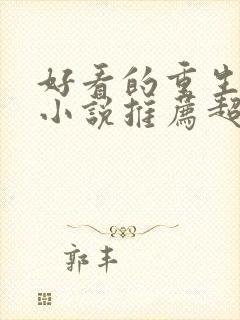 好看的重生
小说推荐超
郭丰